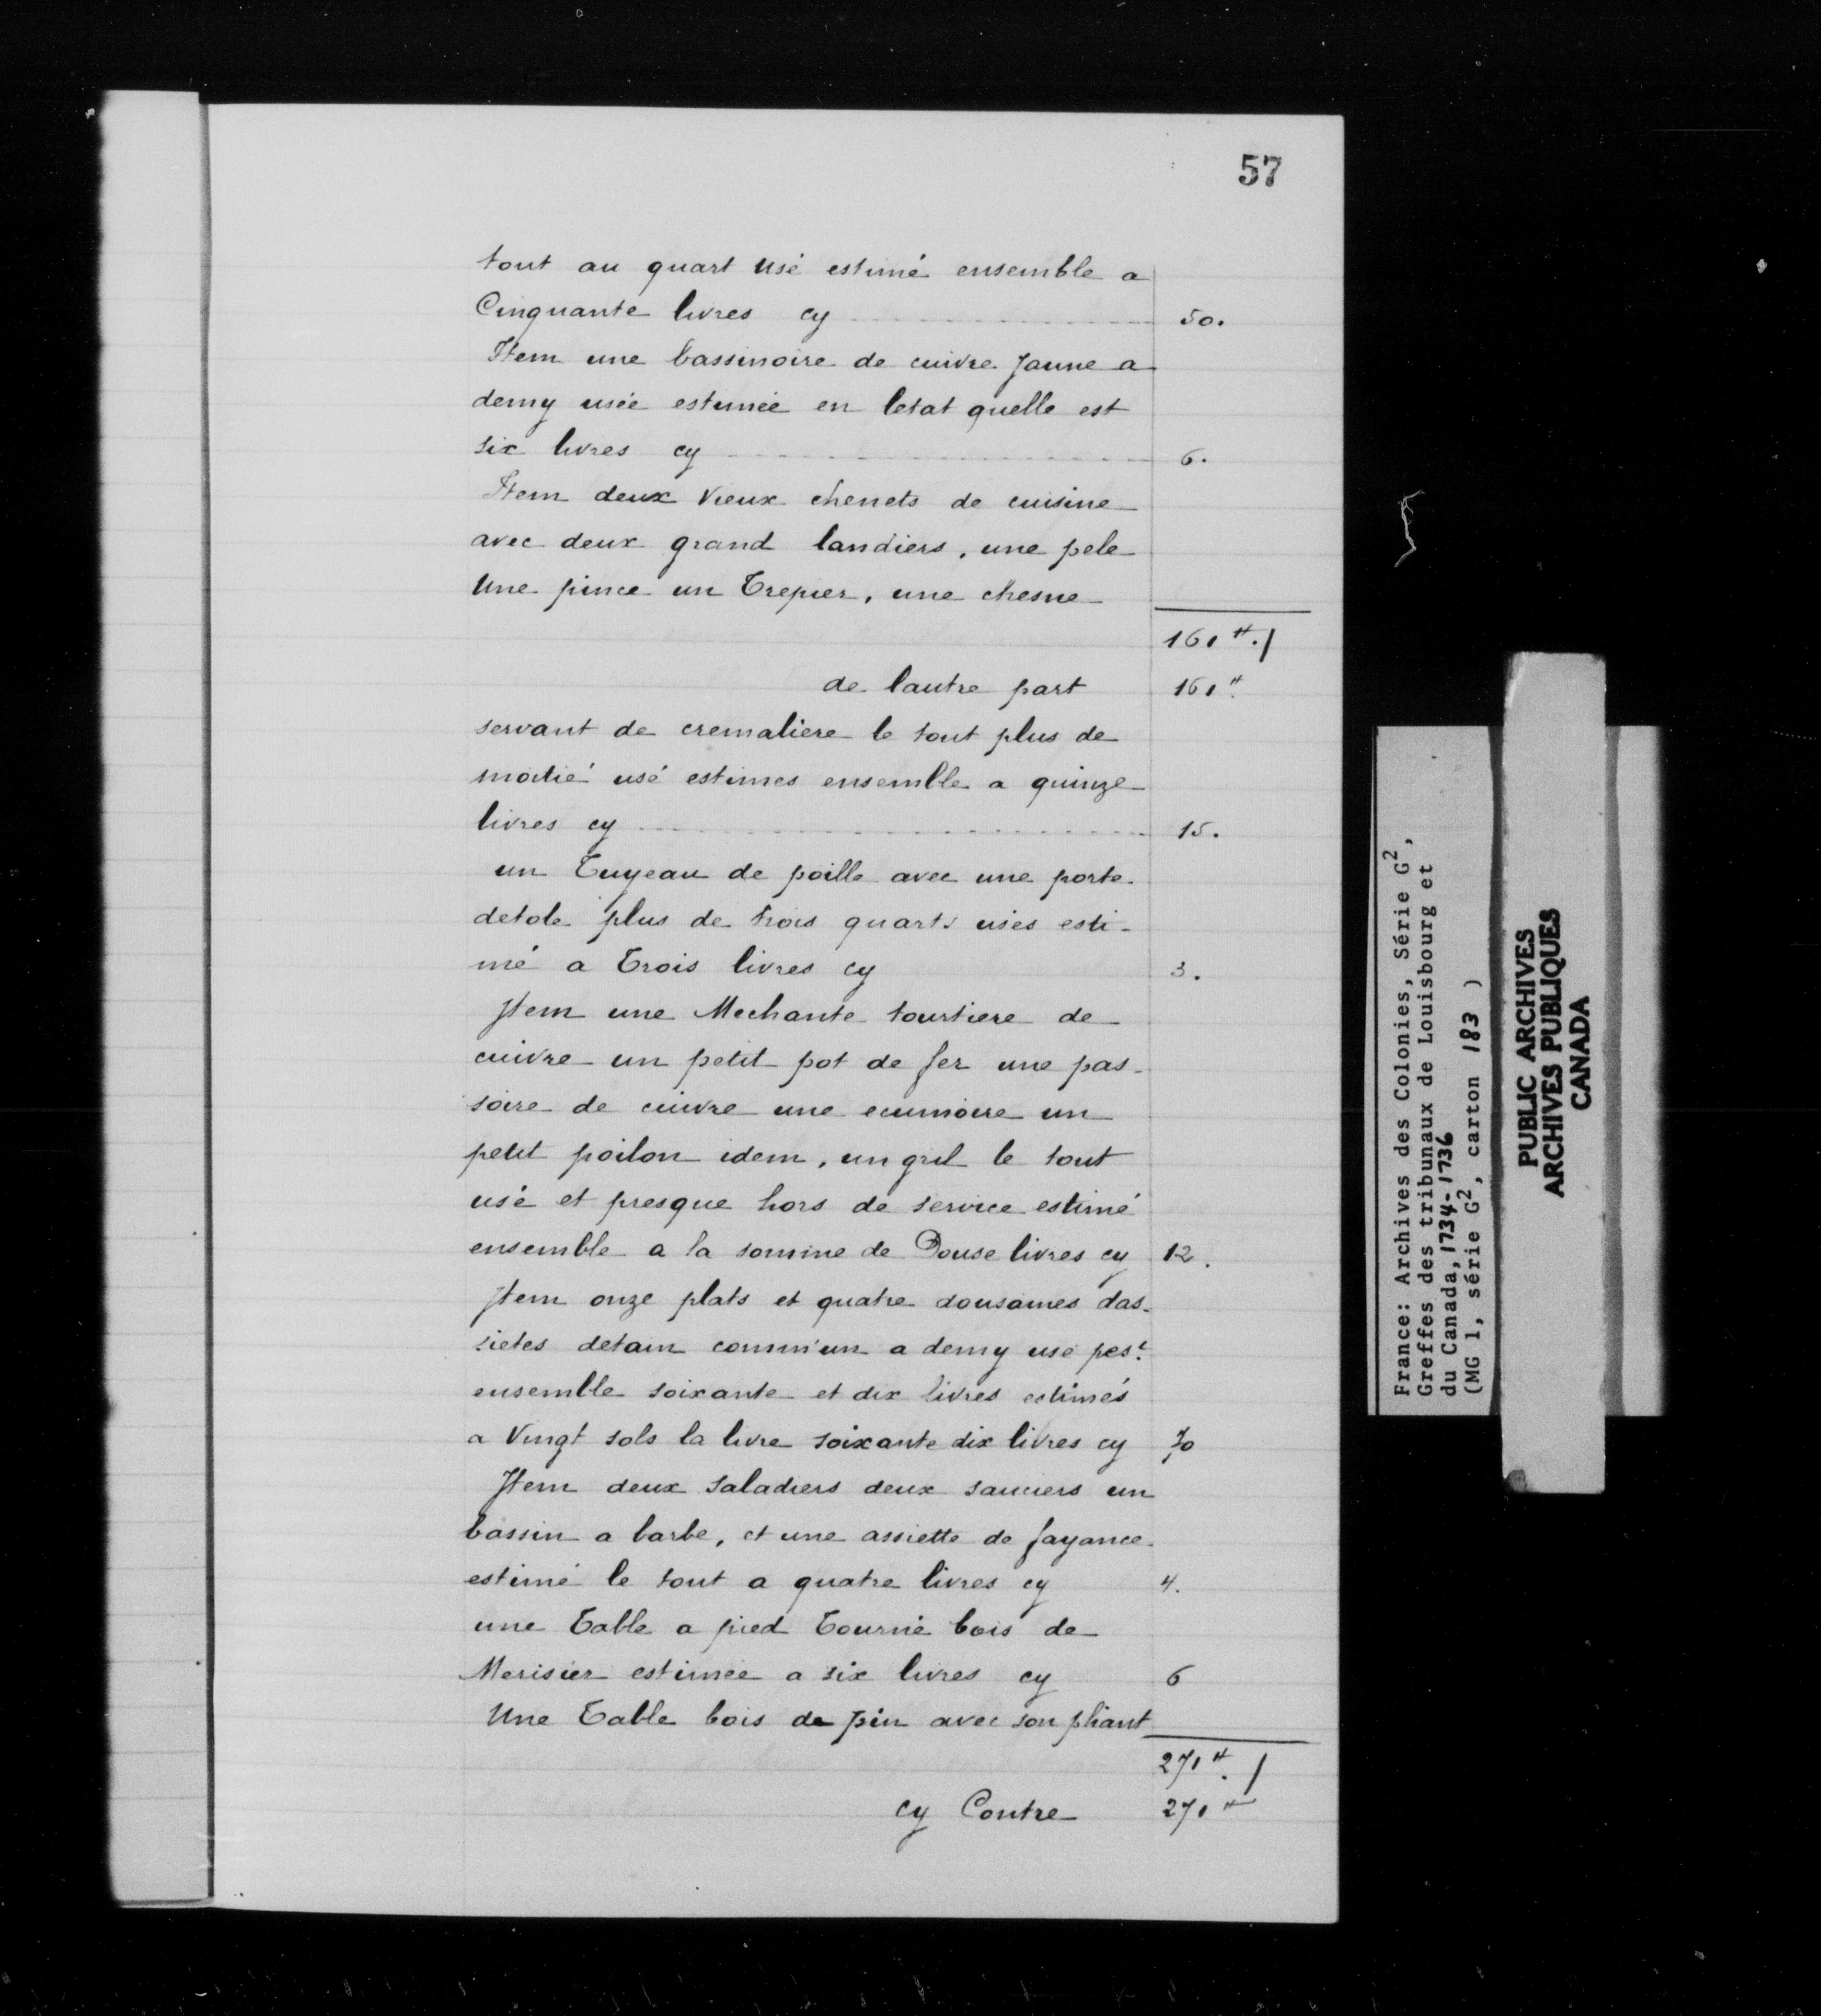 57
tout au quart usé estimé ensemble a
Cinquante livres cy 50.
Item une bassinoire de cuivre Jaune a
demy usée estimée en letat quelle est
six livres cy 6.
Item deux vieux chenets de cuisine
avec deux grand landiers, une pele
Une pince un Trepier, une chesne
161 ₶./
de lautre part 161 ₶
servant de cremaliere le tout plus de
moitié usé estimes ensemble a quinze
livres cy 15.
un Tuyeau de poille avec une porte
detole plus de trois quarts usés esti-
mé a Trois livres cy 3.
Item une Mechante tourtiere de
cuivre un petit pot de fer une pas-
soire de cuivre une ecumoire un
petit poilon idem, un gril le tout
usé et presque hors de service estimé
ensemble a la somme de Douse livres cy 12.
Item onze plats et quatre dousaines das-
sietes detain comm'un a demy usé pest
ensemble soixante et dix livres estimés
a Vingt sols la livre soixante dix livres cy 70
Item deux saladiers deux sauciers un
bassin a barbe, et une assiette de fayance
estimé le tout a quatre livres cy 4.
une Table a pied Tourné bois de
Merisier estimée a six livres cy 6
Une Table bois de pin avec son pliant
271 ₶./
cy Contre 271 ₶
France: Archives des Colonies, Série G2,
Greffes des tribunaux de Louisbourg et
du Canada, 1734-1736
(MG 1, série G2, carton 183 )
PUBLIC ARCHIVES
ARCHIVES PUBLIQUES
CANADA